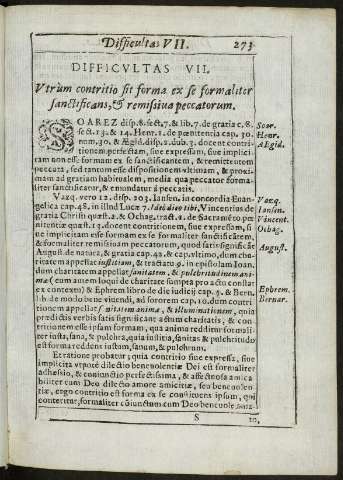 Difficultas VII. 273
DIFFICVLTAS VII.
Vtrùm contritio sit forma ex se formaliter
sanctificans, & remissiua peccatorum.
SOAREZ disp.8.sect.7.& lib.7.de gratia c.8.
sect.13.& 14. Henr.1.de pœnitentia cap.30.
num.30.& Ægid.disp.2.dub.3. docent contri-
tionem perfectam, siue expressam, siue implici-
tam non esse formam ex se sanctificantem, & remittentem
peccata, sed tantùm esse dispositionem vltimam, & proxi-
mam ad gratiam habitualem, media qua peccator forma-
liter sanctificatur, & emundatur à peccatis.
Vazq. vero 12. disp. 203. Iansen. in concordia Euan-
gelica cap.48. in illud Lucæ 7. Ideò dico tibi, Vincentius de
gratia Christi quæst.2.& Ochag.tract.2. de Sacramẽto pe-
nitentiæ quæst.13. docent contritionem, siue expressam, si-
ue implicitam esse formam ex se formaliter sanctificãtem,
& formaliter remissiuam peccatorum, quod satis significãt
August. de natura, & gratia cap.42. & cap.vltimo, dum cha-
ritatem appellat iustitiam, & tractatu 9. in epistolam Ioan.
dum charitatem appellat sanitatem, & pulchritudinem ani-
ma (eum autem loqui de charitate sumpta pro actu constat
ex contextu) & Ephrem libro de die iudicij cap.4. & Bern.
lib. de modo bene viuendi, ad sororem cap.10. dum contri-
tionem appellat vitam anima, & illuminationem, quia
prædictis verbis satis significant actum charitatis, & con-
tritionem esse ipsam formam, qua anima redditur formali-
ter iusta, sana, & pulchra, quia iustitia, sanitas & pulchritudo
est forma reddens iustum, sanum, & pulchrum.
Et ratione probatur; quia contritio siue expressa, siue
implicita vtpotè dilectio beneuolentiæ Dei est formaliter
adhæsio, & coniunctio perfectissima, & affectuosa amica-
biliter cum Deo dilecto amore amicitiæ, seu beneuolen-
tiæ, ergo contritio est forma ex se coniungens ipsum, qui
conteritur, formaliter coniunctum cum Deo beneuolè
S
Soar.
Henr.
AEgid.
Vazq.
Iansen.
Vincent.
Ochag.
August.
Ephrem.
Bernar.